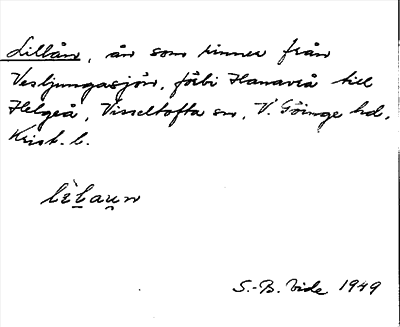 Lillån, ån som rinner från
Vesljungasjön, förbi Hanaveå till
Helgeå, Visseltofta sn, V. Göinge hd,
Krist. l.
lèlaun
S.-B. Vide 1949